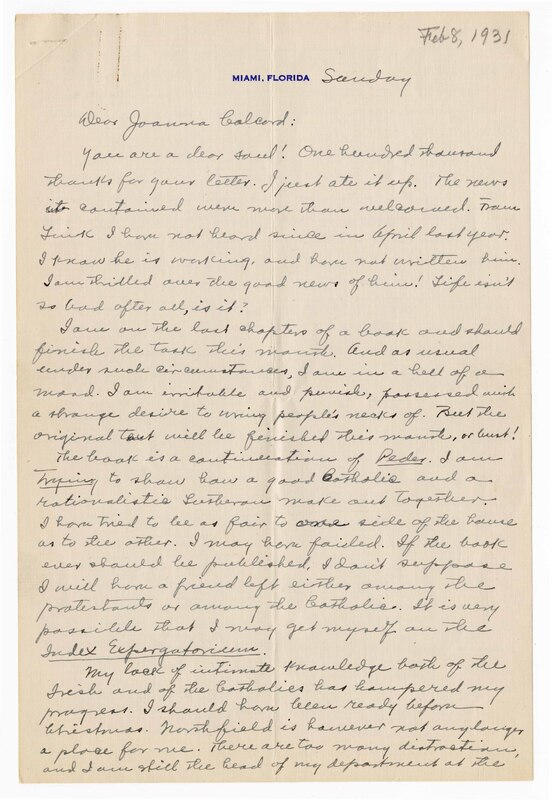 Feb 8, 1931
MIAMI, FLORIDA Sunday
Dear Joanna Colcord:
You are a dear soul! One hundred thousand
thanks for your letter. I just ate it up. The news
it contained were more than welcomed. From
Link I have not heard since in April last year.
I know he is working, and have not written him.
I am thrilled over the good news of him! Life isn't
so bad after all, is it?
I am on the last chapters of a book and should
finish the task this month. And as usual
under such circumstances, I am in a hell of a
mood. I am irritable and pevish, possessed with
a strange desire to wring people's necks of. But the
original text will be finished this month, or bust!
The book is a continuation of Peder. I am
trying to show how a good Catholic and a
rationalistic Lutheran make out together.
I have tried to be as fair to one side of the house
as to the other. I may have failed. If the book
ever should be published, I don't suppose
I will have a friend left either among the
protestants or among the Catholic. It is very
possible that I may get myself on the
Index Expergatorium.
My lack of intimate knowledge both of the
Irish and of the Catholics has hampered my
progress. I should have been ready before
Christmas. Northfield is however not any longer
a place for me. There are too many distraction,
and I am still the head of my department at the